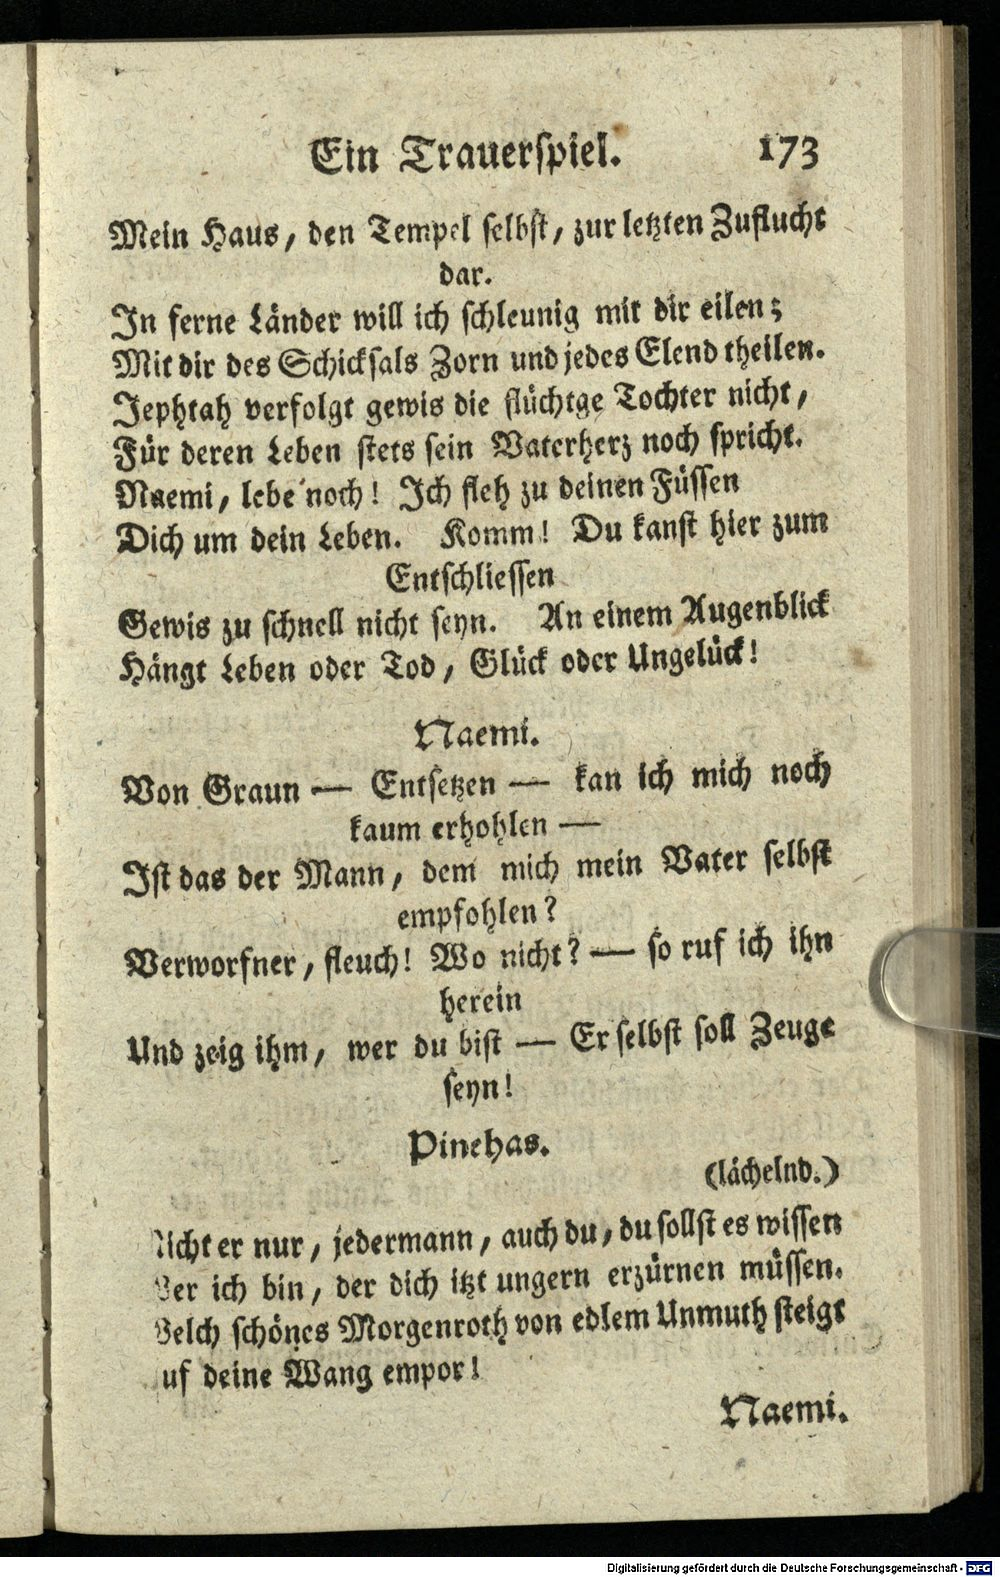 Ein Trauerspiel. 173
Mein Haus, den Tempel selbst, zur letzten Zuflucht
dar.
In ferne Länder will ich schleunig mit dir eilen;
Mit dir des Schicksals Zorn und jedes Elend theilen.
Jephtah verfolgt gewis die flüchtge Tochter nicht,
Für deren Leben stets sein Vaterherz noch spricht.
Naemi, lebe noch! Ich fleh zu deinen Füssen
Dich um dein Leben. Komm! Du kanst hier zum
Entschliessen
Gewis zu schnell nicht seyn. An einem Augenblick
Hängt Leben oder Tod, Glück oder Ungelück!
Naemi.
Von Graun — Entsetzen — kan ich mich noch
kaum erhohlen —
Ist das der Mann, dem mich mein Vater selbst
empfohlen?
Verworfner, fleuch! Wo nicht? — so ruf ich ihn
herein
Und zeig ihm, wer du bist — Er selbst soll Zeuge
seyn!
Pinehas.
(lächelnd.)
Nicht er nur, jedermann, auch du, du sollst es wissen
Wer ich bin, der dich itzt ungern erzürnen müssen.
Welch schönes Morgenroth von edlem Unmuth steigt
uf deine Wang empor!
Naemi.
Digitalisierung gefördert durch die Deutsche Forschungsgemeinschaft - DFG